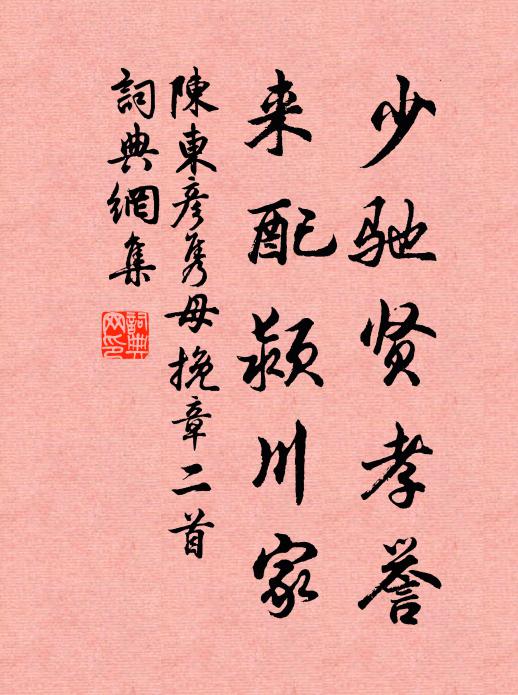 少驰贤孝誉
来配颍川家
陳東彦隽母挽章二首
詞典網集
詞典網印